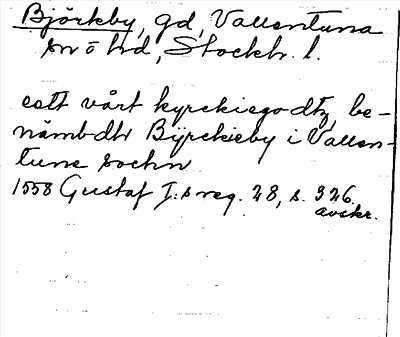 Björkby, gd, Vallentuna
sn o hd, Stockh. l.
ett vårt kyrckiegodtz be-
nämbdt Byrckieby i Vallen-
tuna sochn
1558 Gustaf I:s reg. 28, s. 326.
avskr.